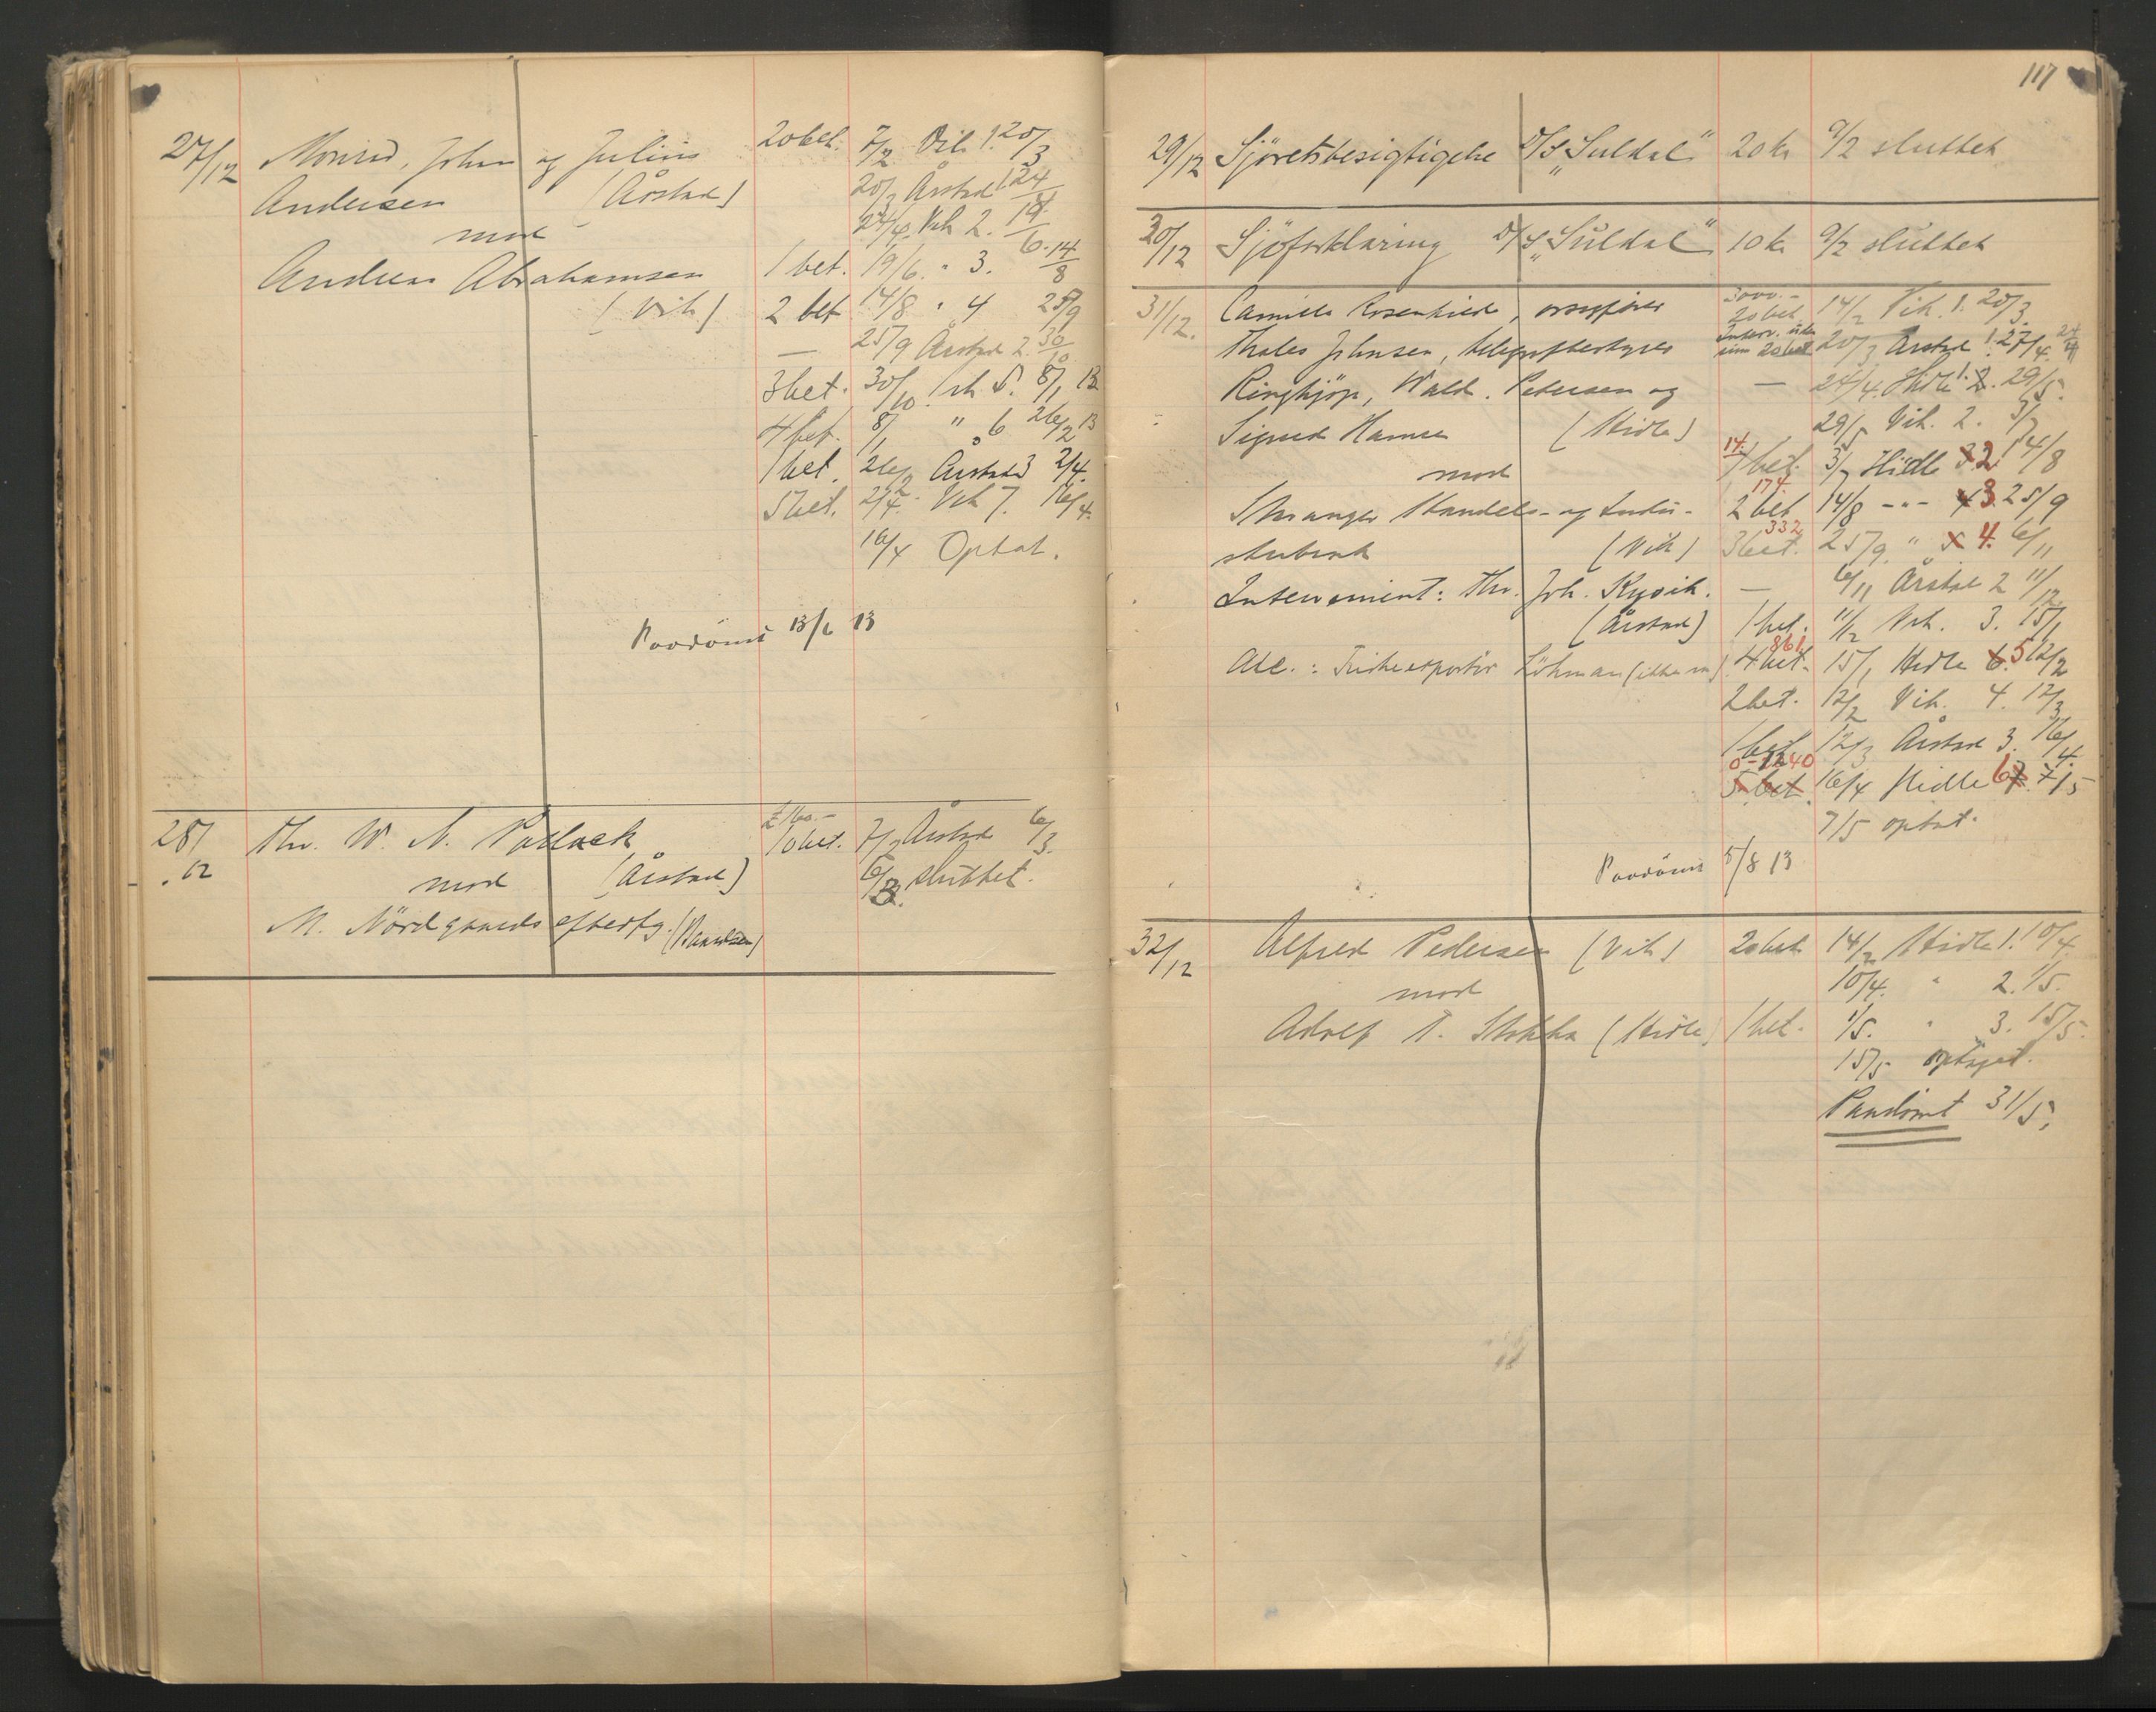 27/12 Monrad, John og Julius 20 bet. 7/2 Vik 1. 20/3
Andersen (Årstad) 20/3 Årstad 1 24/4
mod 24/4 Vik 2. 19/6
Andreas Abrahamsen 1 bet. 19/6 " 3. 14/8
(Vik) 2 bet 14/8 " 4 25/9
— 25/9 Årstad 2. 30/10
3 bet. 30/10 Vik 5. 8/1 13
4 bet. 8/1 " 6 26/2 13
1 bet. 26/2 Årstad 3 2/4.
5 bet. 2/4. Vik 7. 16/4.
16/4 Optat.
Paadömt 13/6 13
28/12 Thr. W. A. 10 bet. 7/2 Årstad 6/3.
mod (Årstad) 6/3. sluttet.
M. Nördgaards efterfg.
117
29/12 Sjöretsbesigtigelse D/S „Suldal“ 20 kr 9/2 sluttet
30/12 Sjöforklaring D/S „Suldal“ 10 kr 9/2 sluttet
31/12. Camilla Rosenkilde, 3000.- 20 bet. 14/2 Vik. 1. 20/3.
Thales Johnsen, telegrafbestyrer 20/3 Årstad 1. 24/4
Ringkjöp, Wald. Petersen og — 24/4. Hidle 1. 29/5.
Sigurd Hansen (Hidle) 29/5 Vik. 2. 3/7
mod 14. 1 bet. 3/7 Hidle 2. 14/8
Stavanger Handels- og Indu- 174 2 bet 14/8 -"- 3. 25/9
stribank (Vik) 332 3 bet. 25/9. " 4. 6/11
Intervenient: Thv. Joh. Kyvik. — 6/11 Årstad 2 11/12
(Årstad) 1 bet. 11/12 Vik. 3. 15/1
861 4 bet. 15/1 Hidle 5 12/2
2 bet. 12/2 Vik. 4. 12/3
1 bet 12/3 Årstad 3. 16/4.
5 bet. 16/4 Hidle 6 7/5
7/5 optat.
Paadömt 5/8 13
32/12 Alfred Pedersen (Vik) 20 bet 14/2 Hidle 1. 10/4
mod 10/4. " 2. 1/5.
Adolf T. Stokka (Hidle) 1 bet. 1/5. " 3. 15/5.
15/5 optaget.
Paadömt 31/5.